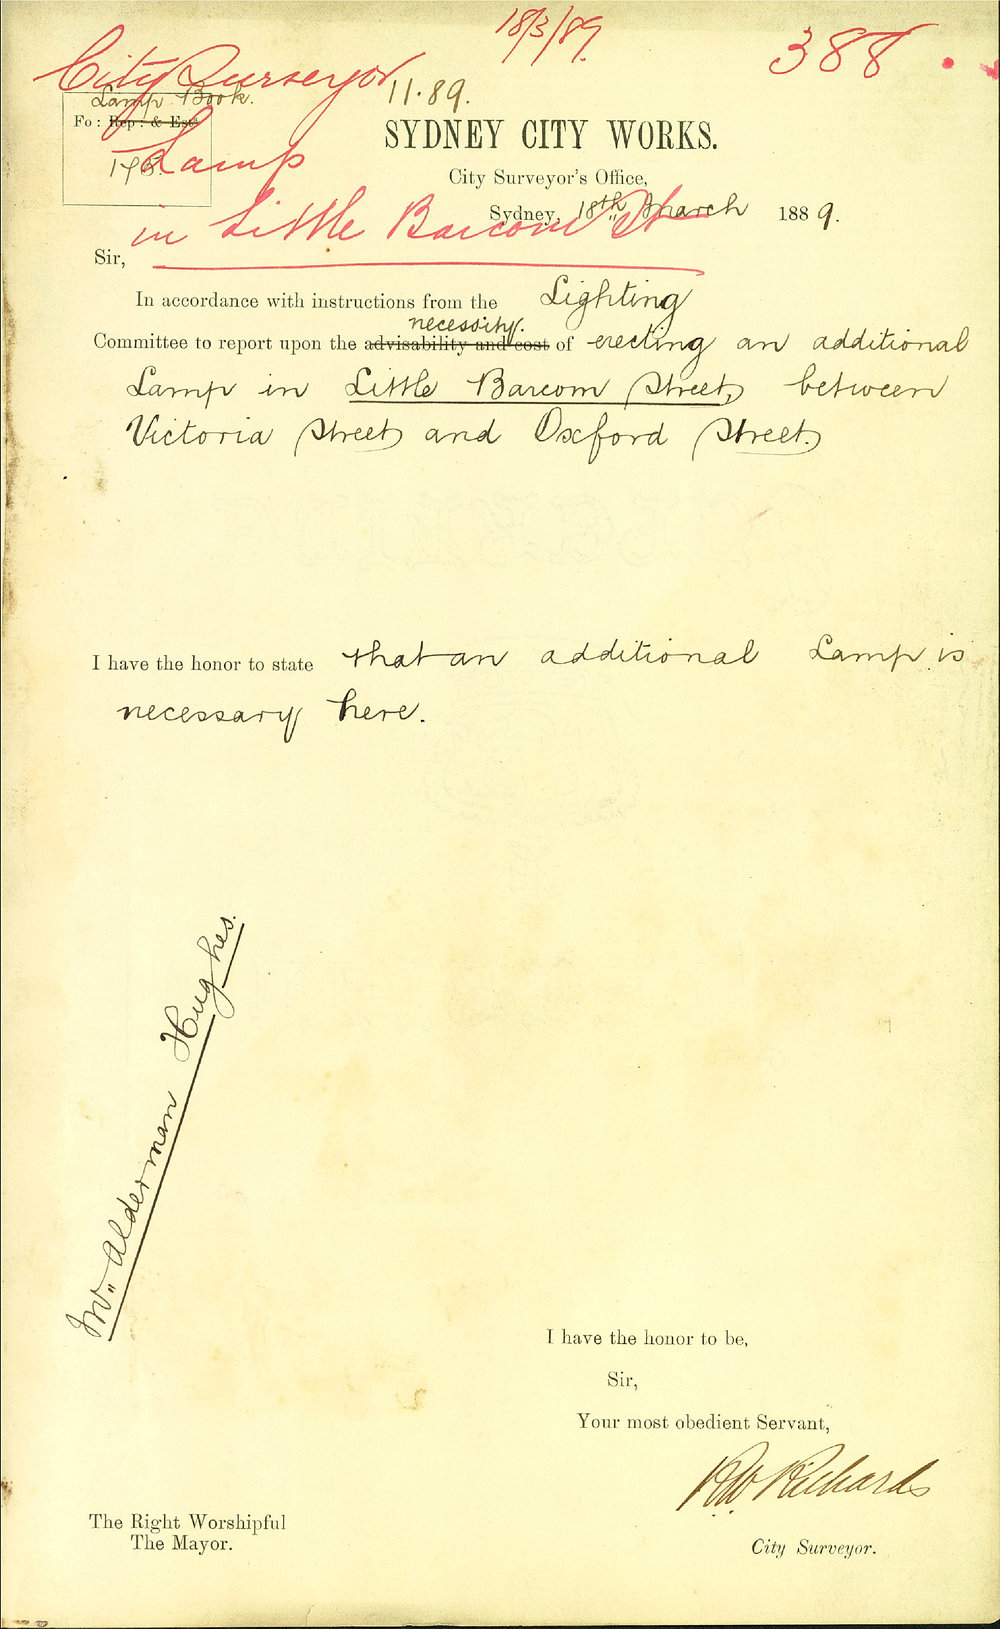 18/3/89.
388.
City Surveyor
Lamp Book.
11.89.
Fo: Rep: & Est:
Lamp
SYDNEY CITY WORKS.
City Surveyor's Office,
Sydney, 18th March 1889.
in Little Barcom St
Sir,
In accordance with instructions from the Lighting
necessity.
Committee to report upon the advisability and cost of erecting an additional
Lamp in Little Barcom Street, between
Victoria Street and Oxford Street.
I have the honor to state that an additional Lamp is
necessary here.
Mr Alderman Hughes.
I have the honor to be,
Sir,
Your most obedient Servant,
RW Richards
The Right Worshipful
The Mayor.
City Surveyor.